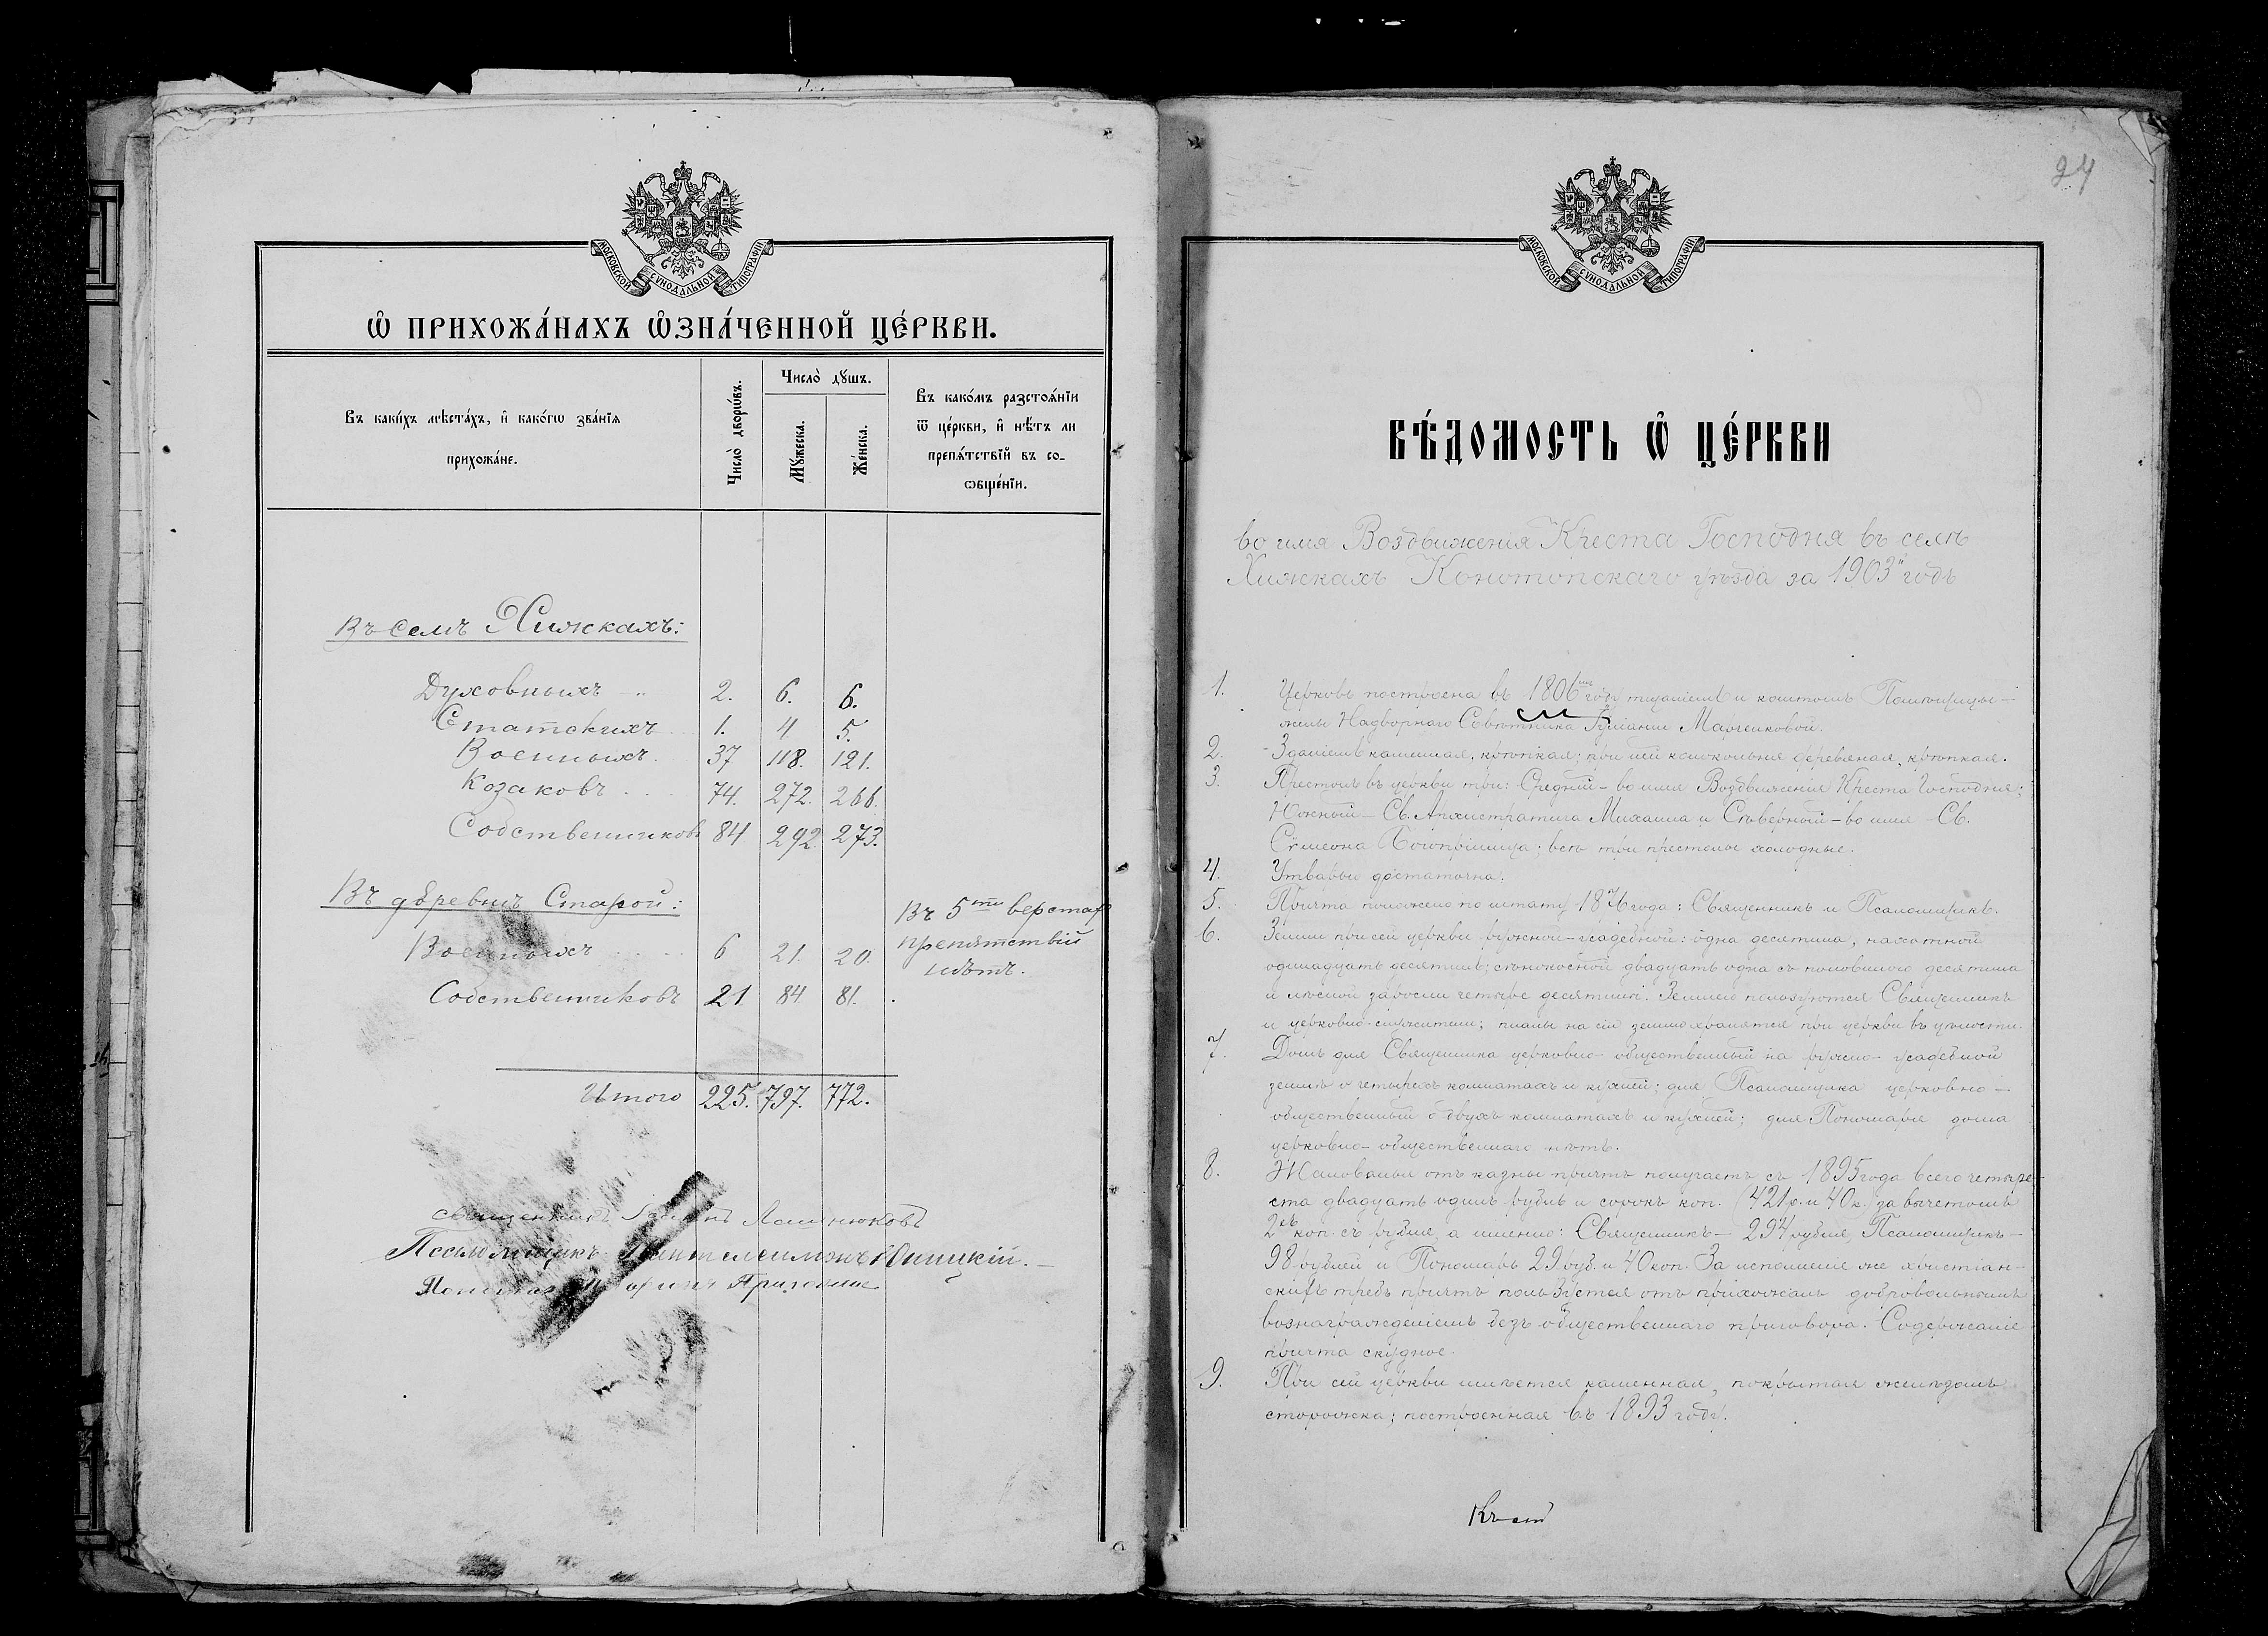 МОСКОВСКОЙ СѴНОДАЛЬНОЙ ТИПОГРАФІИ
Ѡ ПРИХОЖА́НАХЪ Ѡ҆ЗНА́ЧЕННОЙ ЦЕ́РКВИ.
Въ каки́хъ мѣста́хъ, и҆ како́гѡ зва́нїѧ прихожа́не.
Число̀ дворѡ́въ.
Число̀ дꙋшъ.
Мꙋ́жеска.
Же́нска.
Въ како́мъ разстоѧ́нїи
ѿ це́ркви, и҆ нѣ́тъ ли
препѧ́тствїй въ со-
ѡбще́нїи.
Въ селѣ Хижкахъ:
Духовныхъ 2. 6. 6.
Статскихъ 1. 4 5.
Военныхъ 37 118. 121.
Козаковъ 74. 272. 266.
Собственниковъ 84 292. 273.
Въ деревнѣ Старой:
Въ 5ти верстах
Военныхъ 6 21. 20.
препятствій
нѣтъ.
Собственниковъ 21 84 81.
Итого 225. 797. 772.
Священникъ
Псаломщикъ Пантелеимонъ
24
МОСКОВСКОЙ СѴНОДАЛЬНОЙ ТИПОГРАФІИ
ВѢ́ДОМОСТЬ Ѡ҆ ЦЕ́РКВИ
во имя Воздвиженія Креста Господня въ селѣ
Хижкахъ Конотопскаго уѣзда за 1903й годъ
1. Церковь построена въ 1806мъ году тщаніемъ и коштомъ Помѣщицы-
жены Надворнаго Совѣтника Иуліаніи Марченковой.
2. Зданіемъ каменная, крѣпкая; при ней колокольня деревяная, крѣпкая.
3. Престолъ въ церкви три: Средній - во имя Воздвиженія Креста Господня;
Южный - Св. Архистратига Михаила и Сѣверный - во имя Св.
Сѵмеона Богопріимца; всѣ три престолы холодные.
4. Утварью достаточна.
5. Причта положено по штату 1876 года: Священникъ и Псаломщикъ.
6. Земли при сей церкви ружной-усадебной: одна десятина, пахатной
одинадцать десятинъ; сѣнокосной двадцать одна съ половиною десятина
и лѣсной заросли четыре десятины. Землею пользуются Священникъ
и церковно-служители; планы на сію землю хранятся при церкви въ цѣлости.
7. Домъ для Священника церковно-общественный на ружно-усадебной
землѣ о четырехъ комнатахъ и кухней; для Псаломщика церковно-
общественный о двухъ комнатахъ и кухней; для Пономаря дома
церковно-общественнаго нѣтъ.
8. Жалованья отъ казны причтъ получаетъ съ 1895 года всего четыре-
ста двадцать одинъ рубль и сорокъ коп. (421 р. и 40 к. за вычетомъ
2хъ коп. съ рубля, а именно: Священникъ - 294 рубля, Псаломщикъ -
98 рублей и Пономарь 29 руб. и 40 коп. За исполненіе же христіан-
скихъ требъ причтъ пользуется отъ прихожанъ добровольнымъ
вознагражденіемъ безъ общественнаго приговора. Содержаніе
причта скудное.
9. При сей церкви имѣется каменная, покрытая желѣзомъ
сторожка; построенная въ 1893 году.